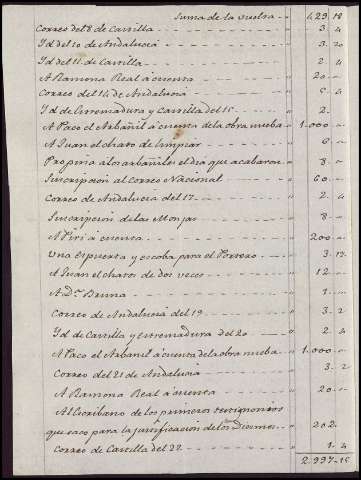 Suma de la vuelta - - - " 423.. 18
Correo del 8 de Castilla - - - " 3.. 4
Yd del 10 de Andalucia - - - " 3.. 20
Yd del 11 de Castilla - - - " 2.. 4
A Ramona Real á cuenta - - - " 20..
Correo del 14 de Andalucia - - - " 5.. 4
Yd de Extremadura y Castilla del 15 - - - " 2..
A Paco el Arbañil á cuenta de la obra nueba - - " 1.000..
A Juan el chato de limpiar - - - " 6..
Propina a los arbañiles el dia que acabaron - - " 8..
Suscripcion al Correo Nacional - - - " 60..
Correo de Andalucia del 17 - - - " 2.. 4
Suscripcion de las Monjas - - - " 8..
A Piri á cuenta - - - " 200..
Una espuerta y escoba para el Portero - - - " 3.. 17
A Juan el chatos de dos veces - - - " 12..
A Dª. Bruna - - - " 1..
Correo de Andalucia del 19 - - - " 3.. 2
Yd de Castilla y extremadura del 20 - - - " 2.. 4
A Paco el Arbanil á cuenta de la obra nueba - - " 1.000..
Correo del 21 de Andalucia - - - " 3.. 2
A Ramona Real á cuenta - - - " 20..
Al Escribano de los primeros testimonios
que saco para la justificacion de los Diezmos - - " 202..
Correo de Castilla del 22 - - - " 1.. 4
2.997..15